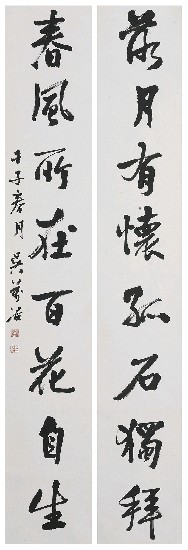 落月有懷孤石獨拜
春風所在百花自生
壬子 月 吳萬谷